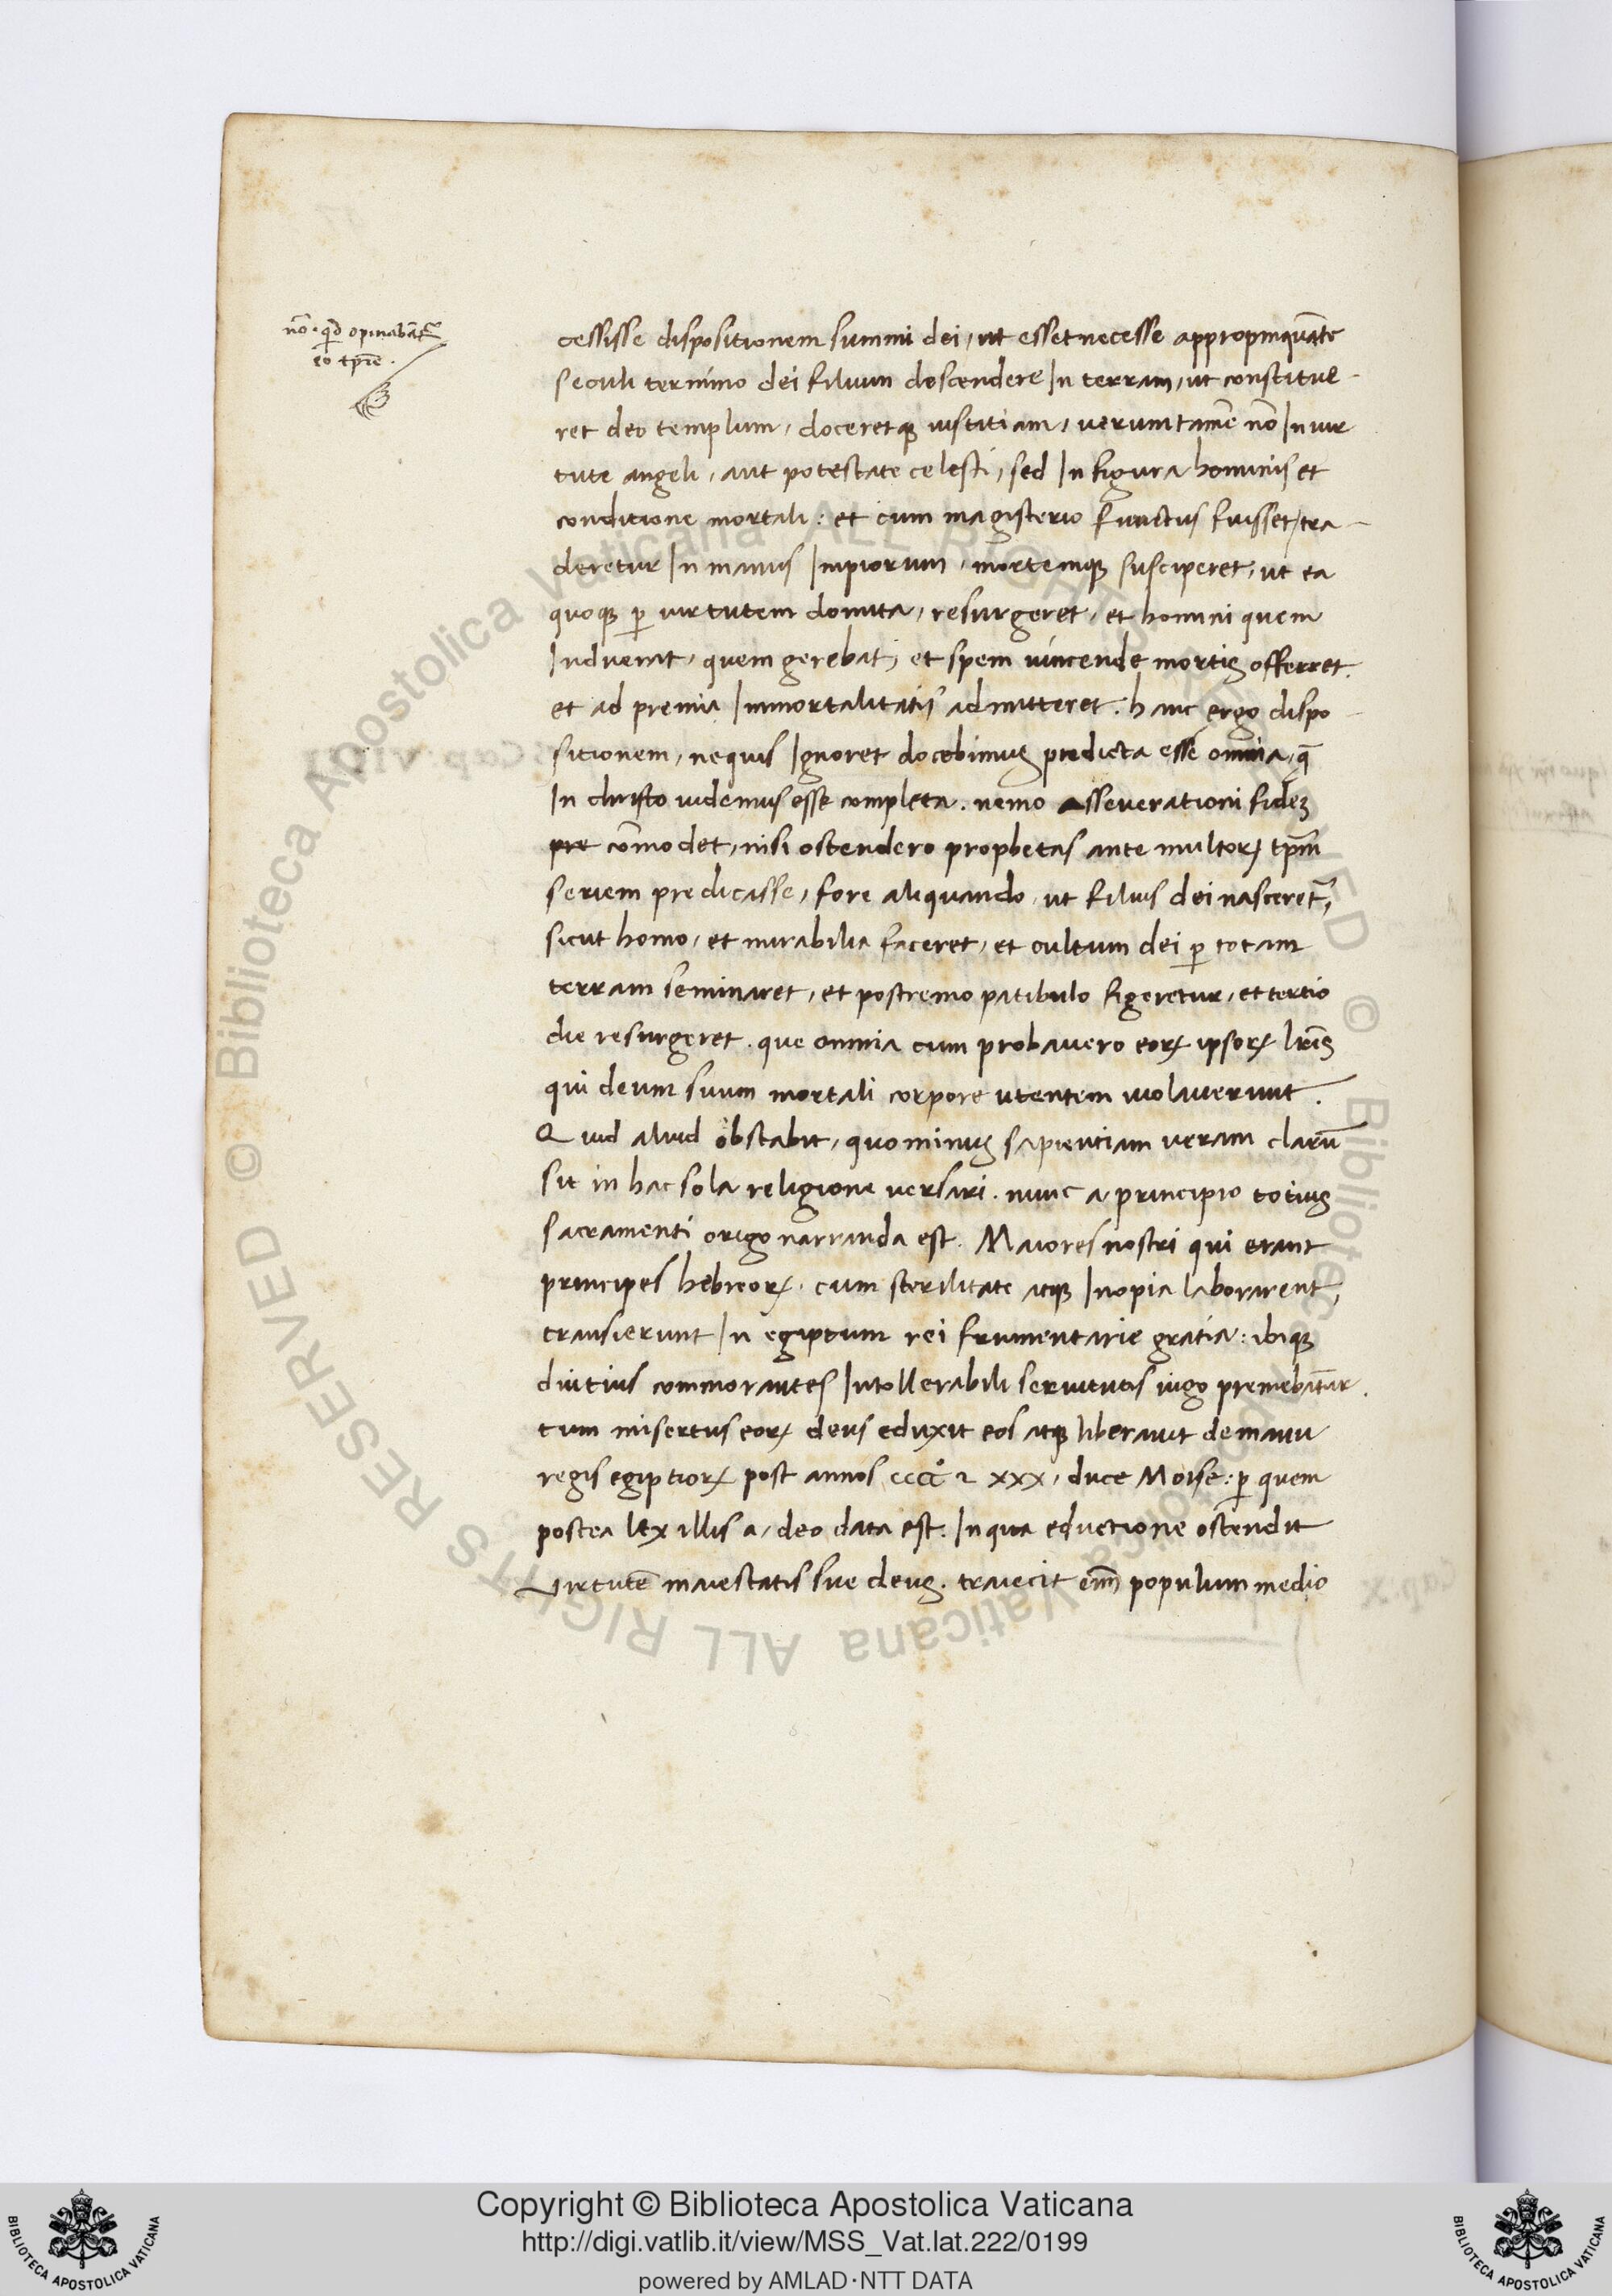 nō. qd opinabāt᷑
eo tp̄re.
cessisse dispositionem summi dei, ut esset necesse appropinquāte
seculi termino dei filium descendere In terram, ut constitue-
ret deo templum, doceretqꝫ iustitiam, uerumtamē nō In uir
tute angeli, aut potestate celesti, sed In figura hominis et
conditione mortali: et cum magisterio functus fuisset, tra-
deretur In manus Impiorum, mortemqꝫ susciperet, ut ea
quoqꝫ ꝑ uirtutem domita, resurgeret, et homini quem
Induerat, quem gerebat, et spem uincende mortis offerret.
et ad premia Immortalitatis admitteret. hanc ergo dispo-
sitionem, nequis Ignoret docebimus predicta esse omnia, q̄
In christo uidemus esse completa. nemo asseuerationi fidēꝫ
pre cōmodet, nisi ostendero prophetas ante multoꝝ tp̄m
seriem predicasse, fore aliquando, ut filius dei nasceret᷑,
sicut homo, et mirabilia faceret, et cultum dei ꝑ totam
terram seminaret, et postremo patibulo figeretur, et tertio
die resurgeret. que omnia cum probauero eoꝝ ipsoꝝ lr̄is
qui deum suum mortali corpore utentem uiolauerunt.
Quid aliud obstabit, quominus sapientiam ueram clarū
sit in hac sola religione uersari. nunc a principio totius
sacramenti origo narranda est. Maiores nostri qui erant
principes hebreoꝝ, cum sterilitate atqꝫ Inopia laborarent,
transierunt In egiptum rei frumentarie gratia: ibiqꝫ
diutius commorantes Intollerabili seruitutis iugo premebantur.
tum misertus eoꝝ deus eduxit eos atqꝫ liberauit de manu
regis egiptioꝝ post annos cccc° ꝛ xxx, duce Moise: ꝑ quem
postea lex illis a, deo data est. In qua eductione ostendit
Virtutē maiestatis sue deus. traiecit em̄ populum medio
Copyright © Biblioteca Apostolica Vaticana
http://digi.vatlib.it/view/MSS_Vat.lat.222/0199
powered by AMLAD·NTT DATA